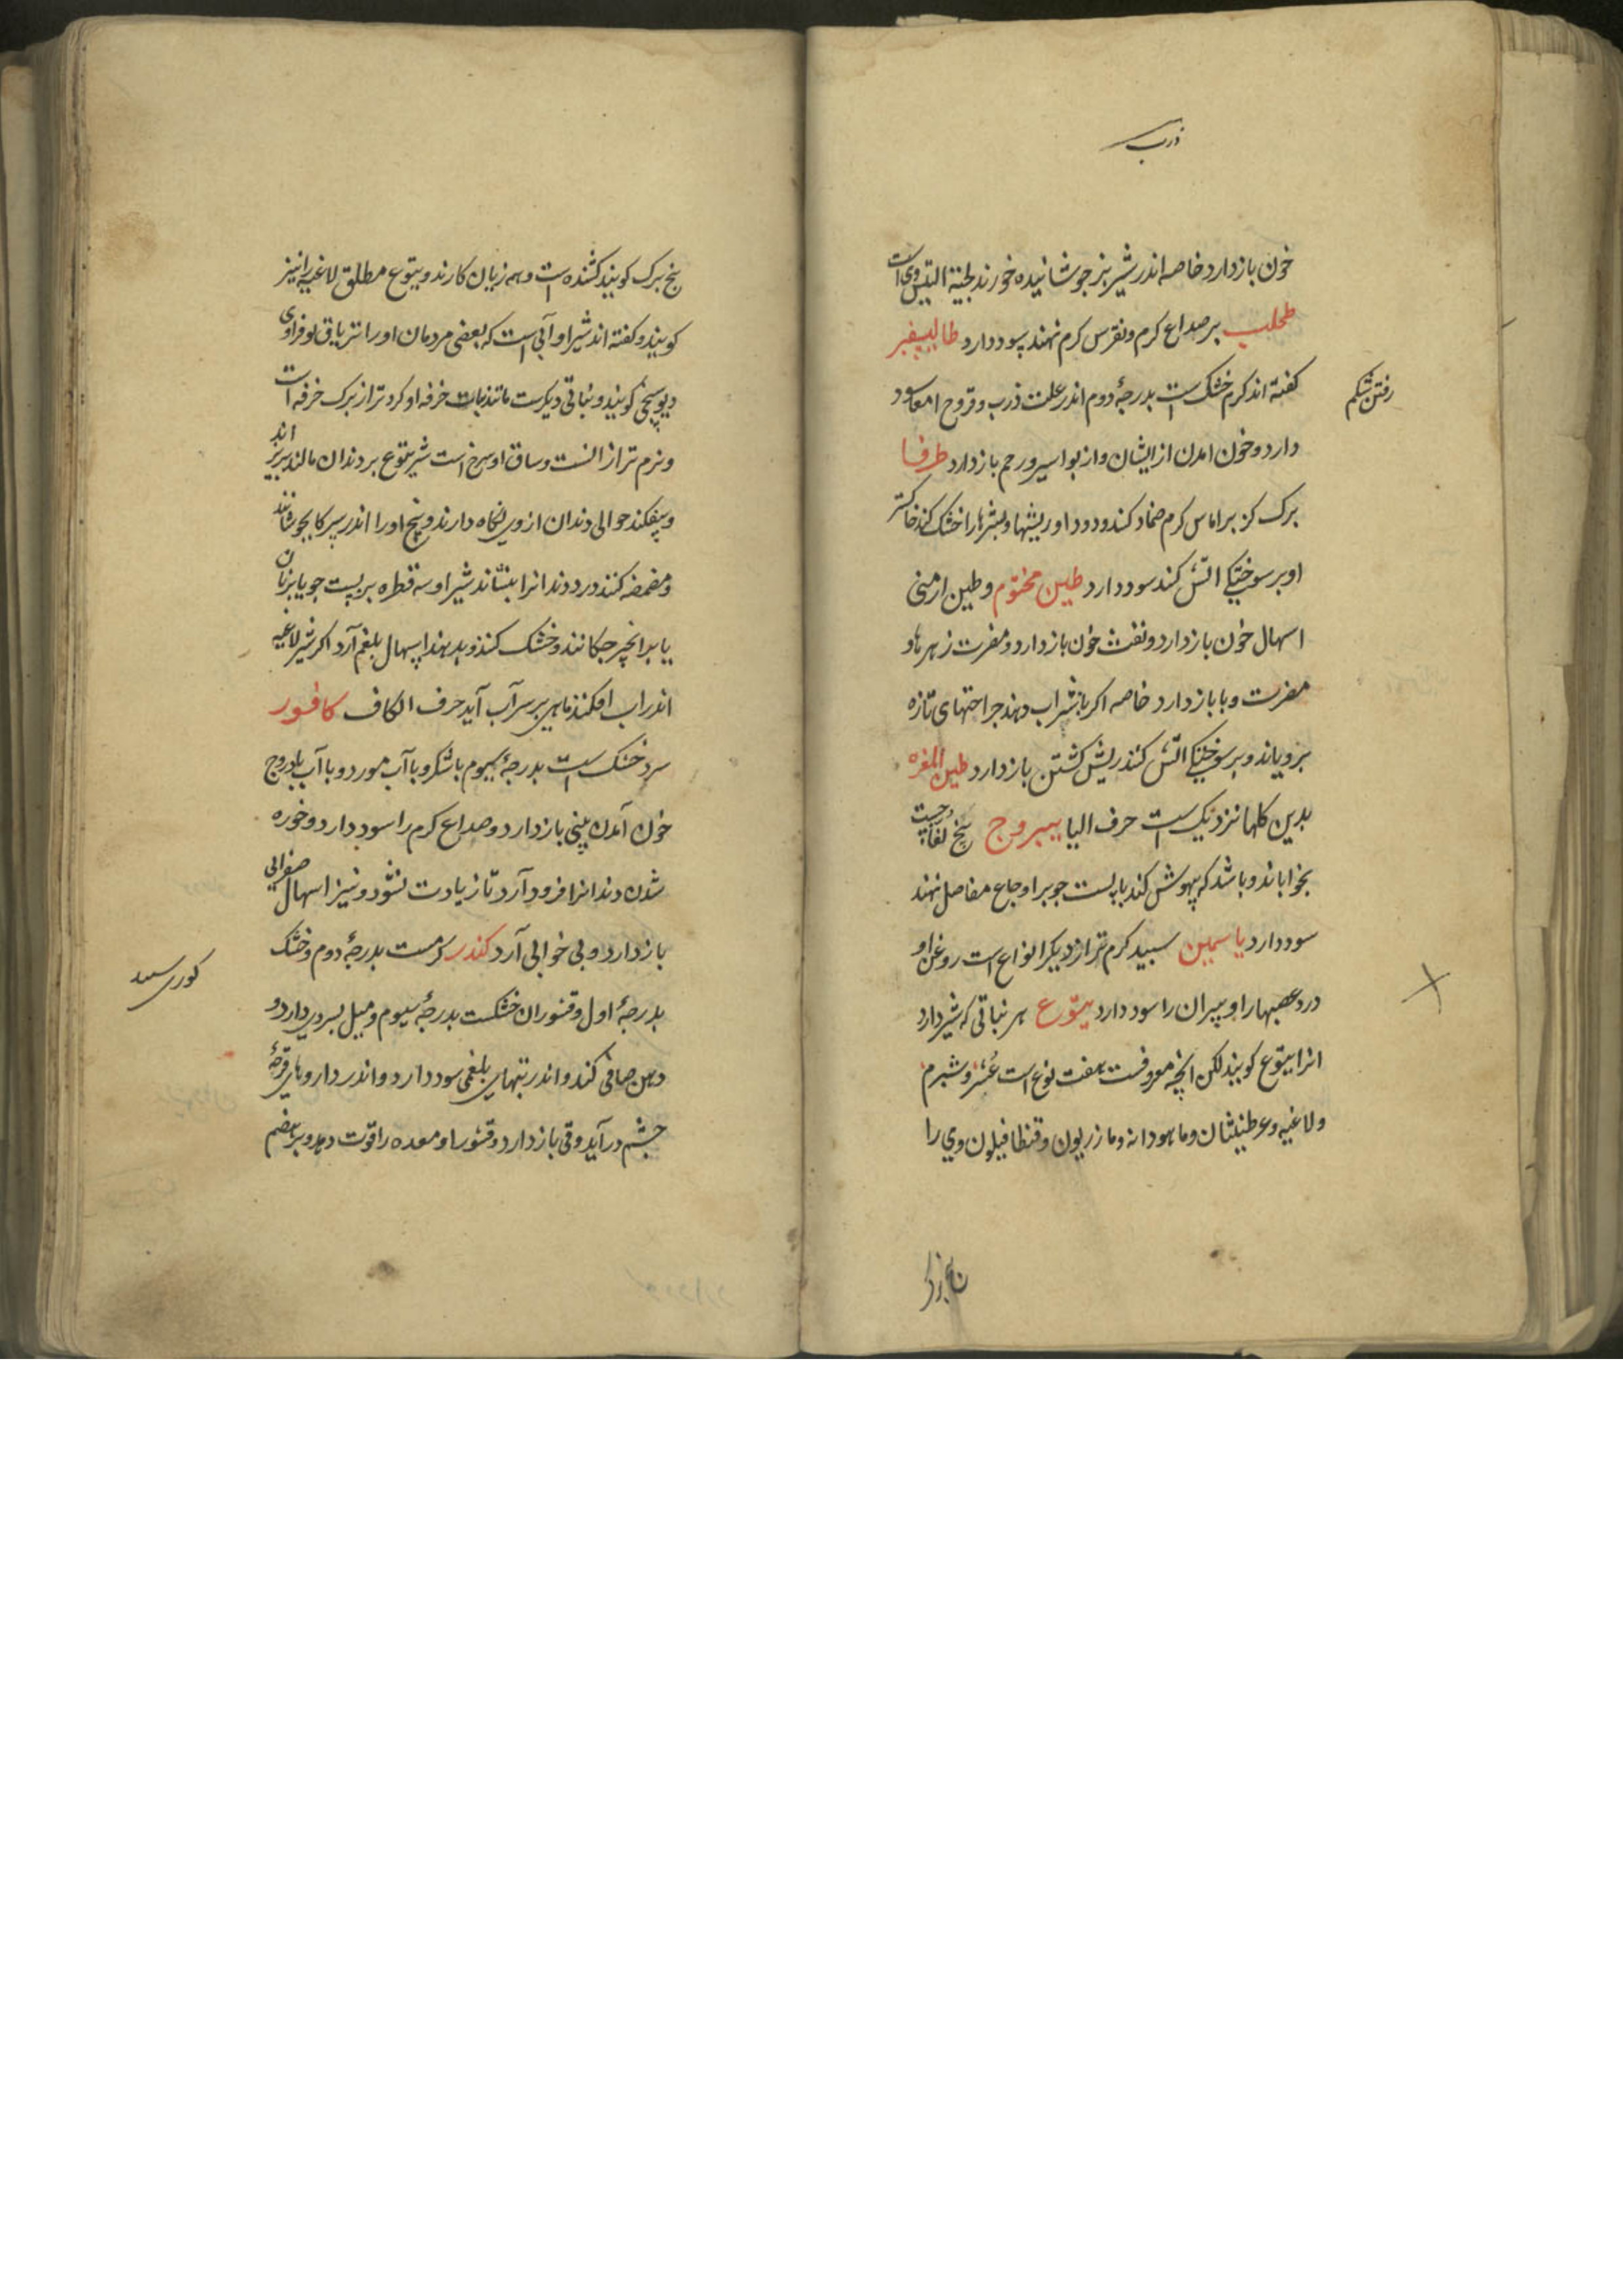 ذرب
خون بازدارد خاصه اندر شیر بز جوشانیده خورند لحیة التیس وی است
طحلب بر صداع کرم ونقرس کرم نهند سود دارد طالیسفر
کفته اند کرم خشک است بدرجهٔ دوم اندر علت ذرب وقروح امعا سود
رفتن شکم
دارد وخون امدن ازایشان واز بواسیر ورحم بازدارد طرفا
برک کز بر اماس کرم ضماد کنند ودود او ریشها وبثرها را خشک کند خاکستر
او بر سوختکی اتش کند سود دارد طین مختوم وطین ارمنی
اسهال خون بازدارد ونفث خون بازدارد ومضرت زهرها و
مضرت وبا بازدارد خاصه اکر با شراب دهند جراحتهای تازه
برویاند وبر سوختکی اتش کنند ریش کشتن بازدارد طین المغره
بدین کلها نزدیک است حرف الیا یبروج بیخ لفاحست
بخواباند وباشد که بیهوش کند با پست جو بر اوجاع مفاصل نهند
سود دارد یاسمین سبید کرم تر از دیکر انواع است روغن او
درد عصبها را وپیران را سود دارد یتّوع هر نباتی که شیر دارد
انرا یتوع کویند لکن انچه معروفست هفت نوع است عُشر وشبرم
ولاغیه وعرطنیثان وماهودانه ومازریون وقنطافیلون وی را
بنج برک کویند کشنده است وهمه زیان کارند ویتوع مطلق لاغیه را نیز
کویند وکفته اند شیر او آنی است که بعضی مردمان او را تریاق
کویند ونباتی دیکرست مانند نبات خرفه او کرد تر از برک خرفه است
ونرم تر از انست وساق او سرخ است شیر یتوع بر دندان مالند بریزاند
وبیفکند حوالی دندان از وی نکاه دارند وبیخ او را اندر سرکا بجوشانند
ومضمضه کنند درد دندانرا بنشاند شیر او سه قطره بر پست جو یا بر نان
یا بر انجیر چکانند وخشک کنند وبدهند اسهال بلغم آرد اکر شیر لاغیه
اندر اب افکنند ماهی بر سر آب آید حرف الکاف کافور
سرد خشک است بدرجهٔ سیوم با شکر وبا آب مورد وبا آب بادروج
خون آمدن بینی بازدارد وصداع کرم را سود دارد وخوره
شدن دندانرا فرود آرد تا زیادت نشود ونیز اسهال صفرایی
بازدارد وبی خوابی آرد کندر کرمست بدرجهٔ دوم وخشک
بدرجهٔ اول وقشور ان خشکست بدرجهٔ سیوم ومیل بسردی دارد و
ذهن صافی کند واندر تبهای بلغمی سود دارد واندر داروهای قرحهٔ
چشم درآید وقی بازدارد وقشور او معده را قوت دهد وبر هضم